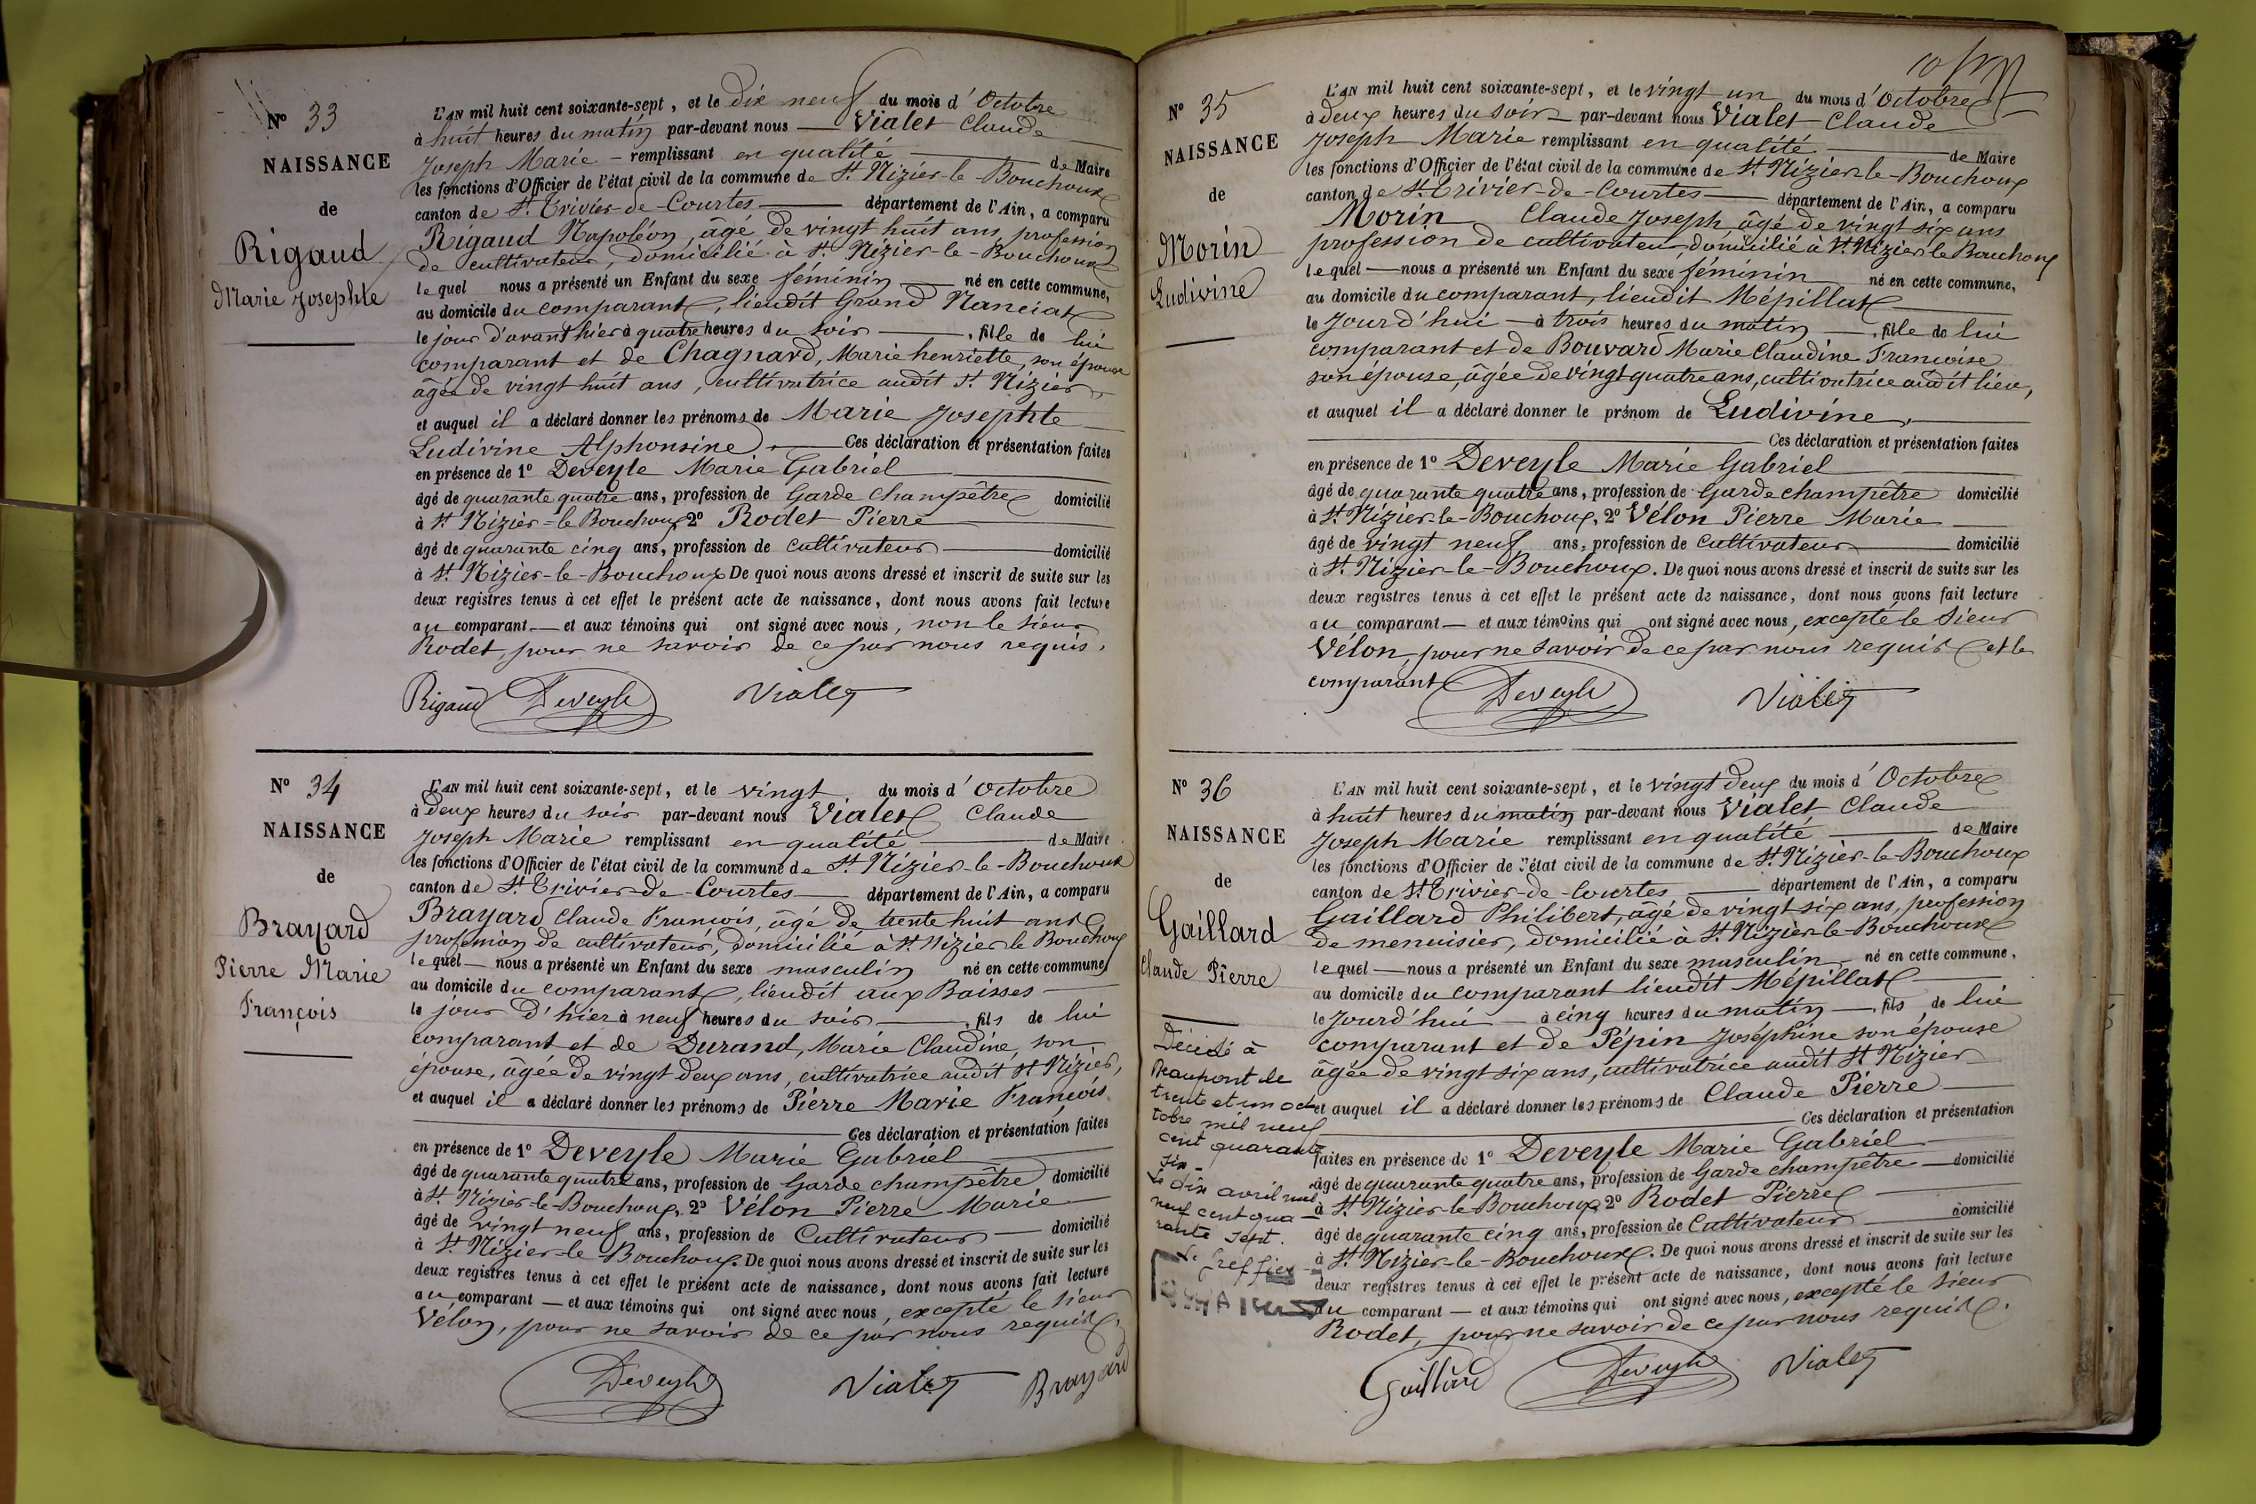 N° 33
NAISSANCE
de
Rigaud
Marie Josephte
L'AN mil huit cent soixante-sept, et le dix neuf du mois d'Octobre
à huit heures du matin par-devant nous — Vialet Claude
Joseph Marie — remplissant en qualité — de Maire
les fonctions d'Officier de l'état civil de la commune de St. Nizier-le-Bouchoux
canton de St. Trivier-de-Courtes — département de l'Ain, a comparu
Rigaud Napoléon, âgé de vingt huit ans, profession
de cultivateur, domicilié à St. Nizier-le-Bouchoux
lequel nous a présenté un Enfant du sexe féminin — né en cette commune,
au domicile du comparant, lieudit Grand Nanciat
le jour d'avant hier à quatre heures du soir — , fille de lui
comparant et de Chagnard, Marie henriette, son épouse
âgée de vingt huit ans, cultivatrice audit St. Nizier
et auquel il a déclaré donner les prénoms de Marie Josephte
Ludivine Alphonsine. — Ces déclaration et présentation faites
en présence de 1° Deveyle Marie Gabriel
âgé de quarante quatre ans, profession de Garde champêtre domicilié
à St. Nizier-le-Bouchoux 2° Rodet Pierre
âgé de quarante cinq ans, profession de cultivateur — domicilié
à St. Nizier-le-Bouchoux De quoi nous avons dressé et inscrit de suite sur les
deux registres tenus à cet effet le présent acte de naissance, dont nous avons fait lecture
au comparant — et aux témoins qui ont signé avec nous, non le sieur
Rodet, pour ne savoir de ce par nous requis.
Rigaud Deveyle Vialet
N° 34
NAISSANCE
de
Brayard
Pierre Marie
François
L'AN mil huit cent soixante-sept, et le vingt du mois d'Octobre
à deux heures du soir par-devant nous Vialet Claude
Joseph Marie remplissant en qualité — de Maire
les fonctions d'Officier de l'état civil de la commune de St. Nizier-le-Bouchoux
canton de St. Trivier-de-Courtes — département de l'Ain, a comparu
Brayard Claude François, âgé de trente huit ans
profession de cultivateur, domicilié à St Nizier le Bouchoux
lequel — nous a présenté un Enfant du sexe masculin né en cette commune,
au domicile du comparant, lieudit aux Baisses
le jour d'hier à neuf heures du soir — , fils de lui
comparant et de Durand, Marie Claudine, son
épouse, âgée de vingt deux ans, cultivatrice audit St Nizier,
et auquel il a déclaré donner les prénoms de Pierre Marie François.
Ces déclaration et présentation faites
en présence de 1° Deveyle Marie Gabriel
âgé de quarante quatre ans, profession de Garde champêtre domicilié
à St. Nizier-le-Bouchoux, 2° Vélon Pierre Marie
âgé de vingt neuf ans, profession de Cultivateur — domicilié
à St. Nizier-le-Bouchoux. De quoi nous avons dressé et inscrit de suite sur les
deux registres tenus à cet effet le présent acte de naissance, dont nous avons fait lecture
au comparant — et aux témoins qui ont signé avec nous, excepté le sieur
Vélon, pour ne savoir de ce par nous requis.
Deveyle Vialet Brayard
N° 35
NAISSANCE
de
Morin
Ludivine
L'AN mil huit cent soixante-sept, et le vingt un du mois d'Octobre
à deux heures du soir — par-devant nous Vialet Claude
Joseph Marie remplissant en qualité — de Maire
les fonctions d'Officier de l'état civil de la commune de St. Nizier-le-Bouchoux
canton de St. Trivier-de-Courtes — département de l'Ain, a comparu
Morin Claude Joseph âgé de vingt six ans
profession de cultivateur, domicilié à St. Nizier le Bouchoux
lequel — nous a présenté un Enfant du sexe féminin né en cette commune,
au domicile du comparant, lieudit Mépillat
le jourd'hui — à trois heures du matin — , fille de lui
comparant et de Bouvard Marie Claudine Francoise
son épouse, âgée de vingt quatre ans, cultivatrice audit lieu,
et auquel il a déclaré donner le prénom de Ludivine,
Ces déclaration et présentation faites
en présence de 1° Deveyle Marie Gabriel
âgé de quarante quatre ans, profession de Garde champêtre domicilié
à St. Nizier-le-Bouchoux, 2° Vélon Pierre Marie
âgé de vingt neuf ans, profession de Cultivateur — domicilié
à St. Nizier-le-Bouchoux. De quoi nous avons dressé et inscrit de suite sur les
deux registres tenus à cet effet le présent acte de naissance, dont nous avons fait lecture
au comparant — et aux témoins qui ont signé avec nous, excepté le sieur
Vélon, pour ne savoir de ce par nous requis et le
comparant
Deveyle Vialet
N° 36
NAISSANCE
de
Gaillard
Claude Pierre
Décédé à
Beaupont le
trente et un oc-
tobre mil neuf
cent quarante
six -
Le dix avril mil
neuf cent qua-
rante sept.
Le Greffier
L'AN mil huit cent soixante-sept, et le vingt deux du mois d'Octobre
à huit heures du matin par-devant nous Vialet Claude
Joseph Marie remplissant en qualité — de Maire
les fonctions d'Officier de l'état civil de la commune de St. Nizier-le-Bouchoux
canton de St. Trivier-de-Courtes — département de l'Ain, a comparu
Gaillard Philibert, âgé de vingt six ans, profession
de menuisier, domicilié à St. Nizier-le-Bouchoux
lequel — nous a présenté un Enfant du sexe masculin né en cette commune,
au domicile du comparant lieudit Mépillat
le jourd'hui — à cinq heures du matin — , fils de lui
comparant et de Pépin Joséphine son épouse
âgée de vingt six ans, cultivatrice audit St Nizier
et auquel il a déclaré donner les prénoms de Claude Pierre
Ces déclaration et présentation
faites en présence de 1° Deveyle Marie Gabriel
âgé de quarante quatre ans, profession de Garde champêtre — domicilié
à St. Nizier-le-Bouchoux 2° Rodet Pierre
âgé de quarante cinq ans, profession de Cultivateur — domicilié
à St. Nizier-le-Bouchoux. De quoi nous avons dressé et inscrit de suite sur les
deux registres tenus à cet effet le présent acte de naissance, dont nous avons fait lecture
au comparant — et aux témoins qui ont signé avec nous, excepté le sieur
Rodet, pour ne savoir de ce par nous requis.
Gaillard Deveyle Vialet